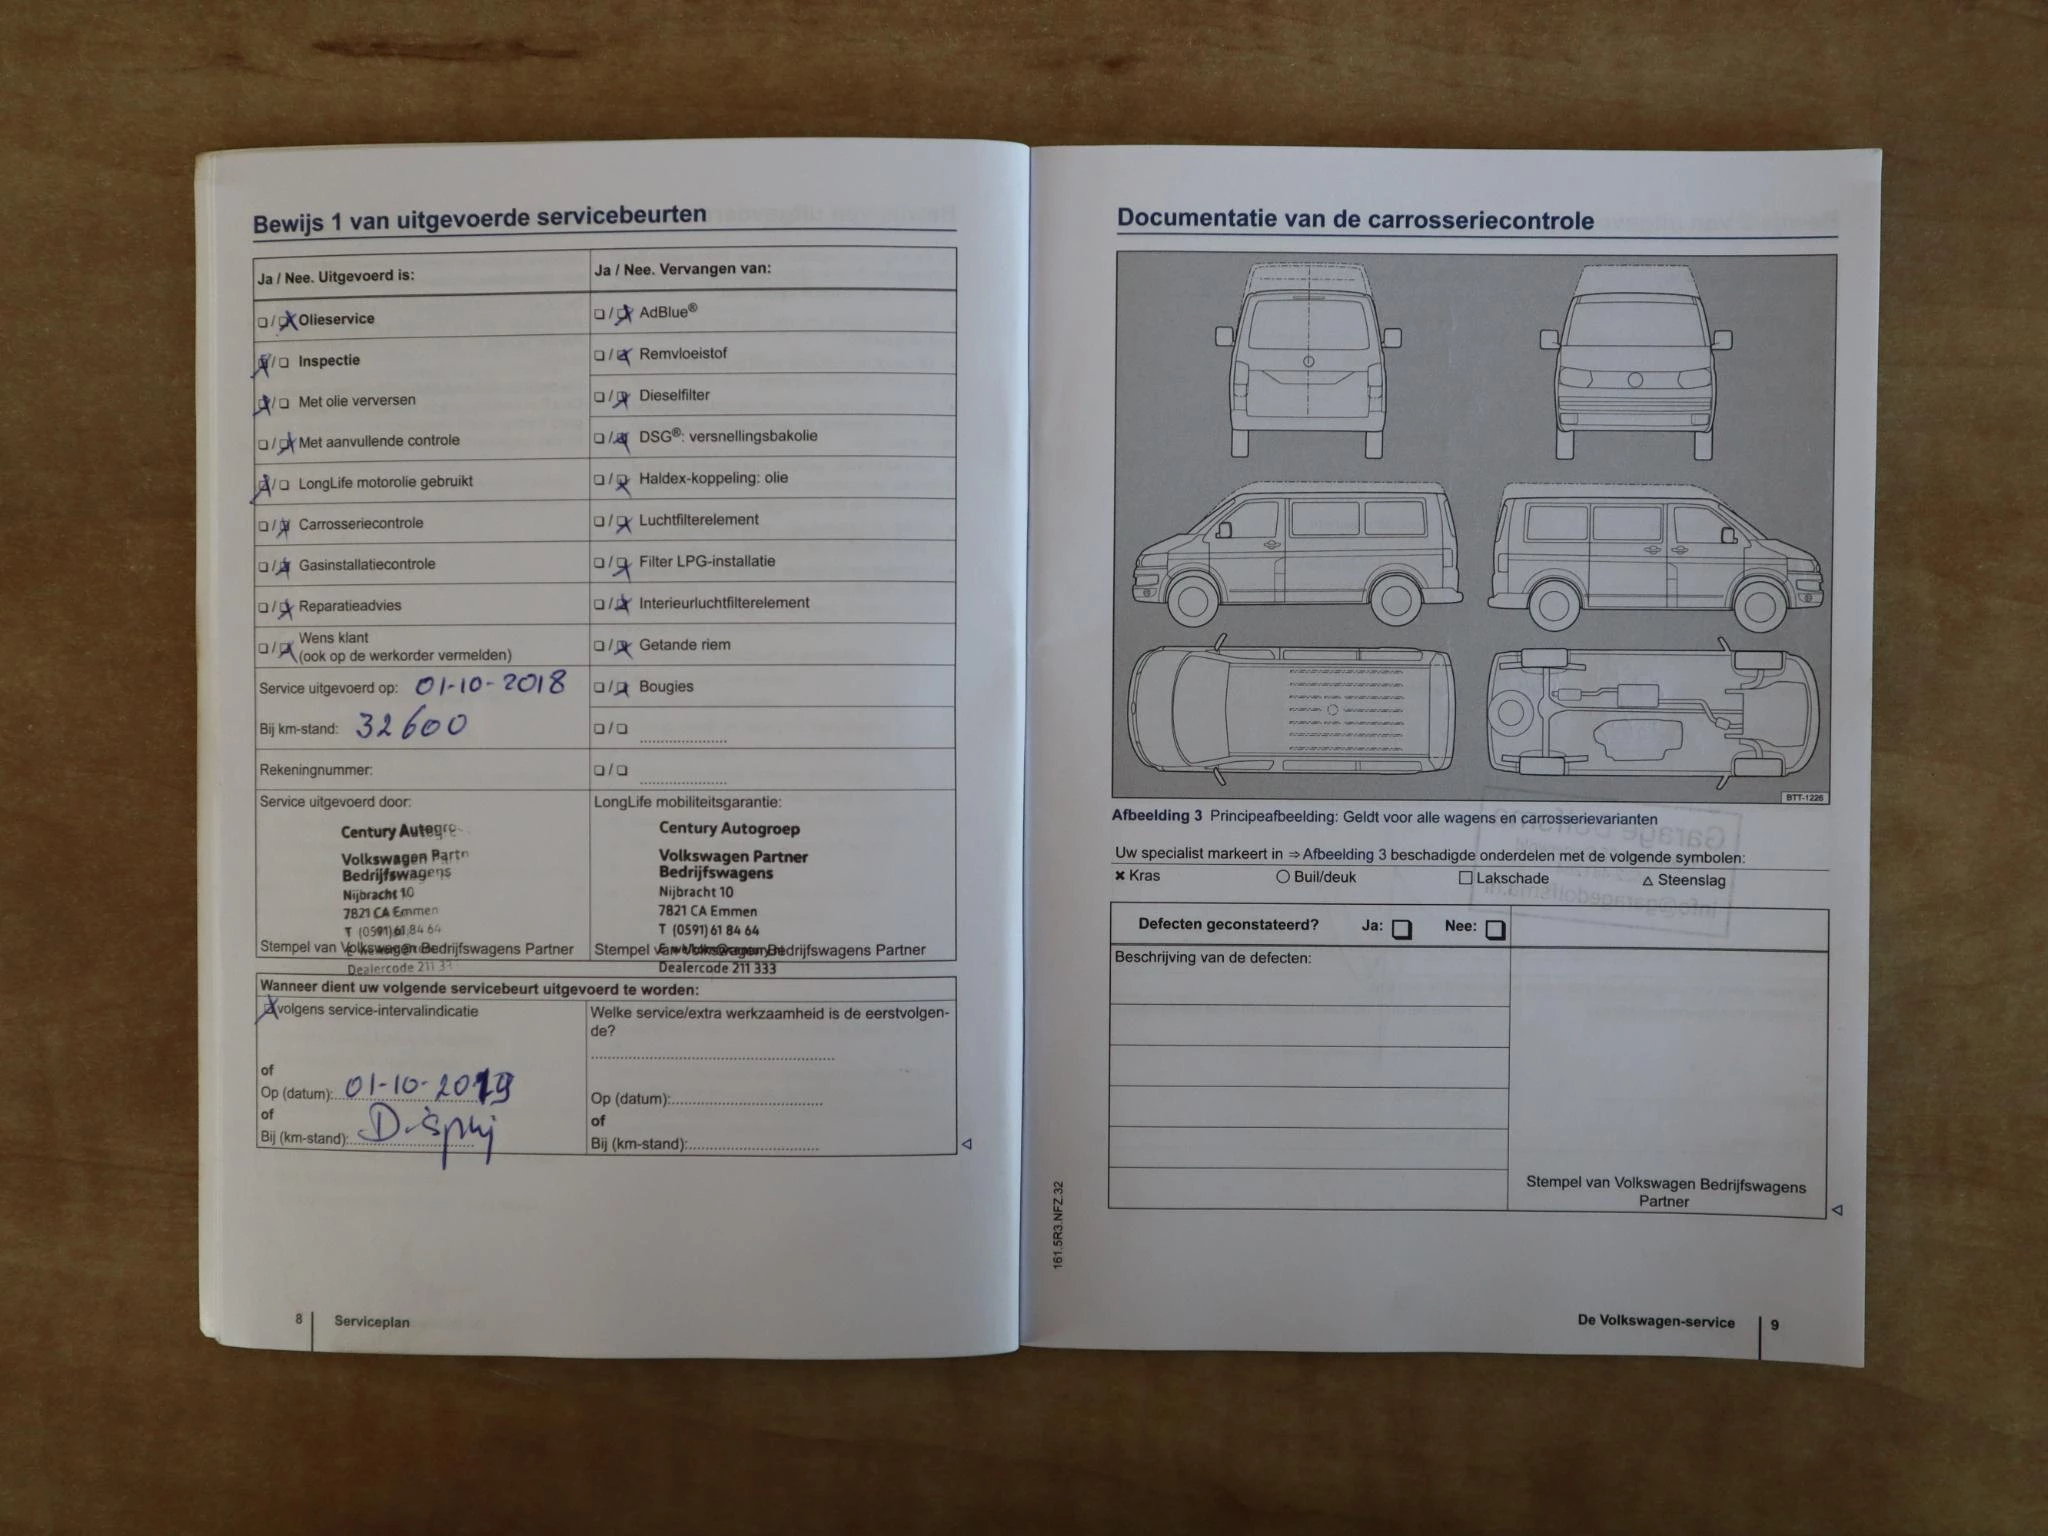 Bewijs 1 van uitgevoerde servicebeurten
Ja / Nee. Uitgevoerd is:
Olieservice
Inspectie
Met olie verversen
Met aanvullende controle
LongLife motorolie gebruikt
Carrosseriecontrole
Gasinstallatiecontrole
Reparatieadvies
Wens klant
(ook op de werkorder vermelden)
Service uitgevoerd op: 01-10-2018
Bij km-stand: 32600
Rekeningnummer:
Service uitgevoerd door:
Century Autogro
Volkswagen Partn
Bedrijfswagens
Nijbracht 10
7821 CA Emmen
T (0591) 61 84 64
Stempel van Volkswagen Bedrijfswagens Partner
Dealercode 211 33
Ja / Nee. Vervangen van:
AdBlue®
Remvloeistof
Dieselfilter
DSG®: versnellingsbakolie
Haldex-koppeling: olie
Luchtfilterelement
Filter LPG-installatie
Interieurluchtfilterelement
Getande riem
Bougies
LongLife mobiliteitsgarantie:
Century Autogroep
Volkswagen Partner
Bedrijfswagens
Nijbracht 10
7821 CA Emmen
T (0591) 61 84 64
Stempel van Volkswagen Bedrijfswagens Partner
Dealercode 211 333
Wanneer dient uw volgende servicebeurt uitgevoerd te worden:
volgens service-intervalindicatie
of
Op (datum): 01-10-2019
of
Bij (km-stand):
Welke service/extra werkzaamheid is de eerstvolgen-
de?
Op (datum):
of
Bij (km-stand):
8 Serviceplan
Documentatie van de carrosseriecontrole
BTT-1226
Afbeelding 3 Principeafbeelding: Geldt voor alle wagens en carrosserievarianten
Uw specialist markeert in ⇒ Afbeelding 3 beschadigde onderdelen met de volgende symbolen:
Kras Buil/deuk Lakschade Steenslag
Defecten geconstateerd? Ja: Nee:
Beschrijving van de defecten:
Stempel van Volkswagen Bedrijfswagens
Partner
161.5R3.NFZ.32
De Volkswagen-service 9